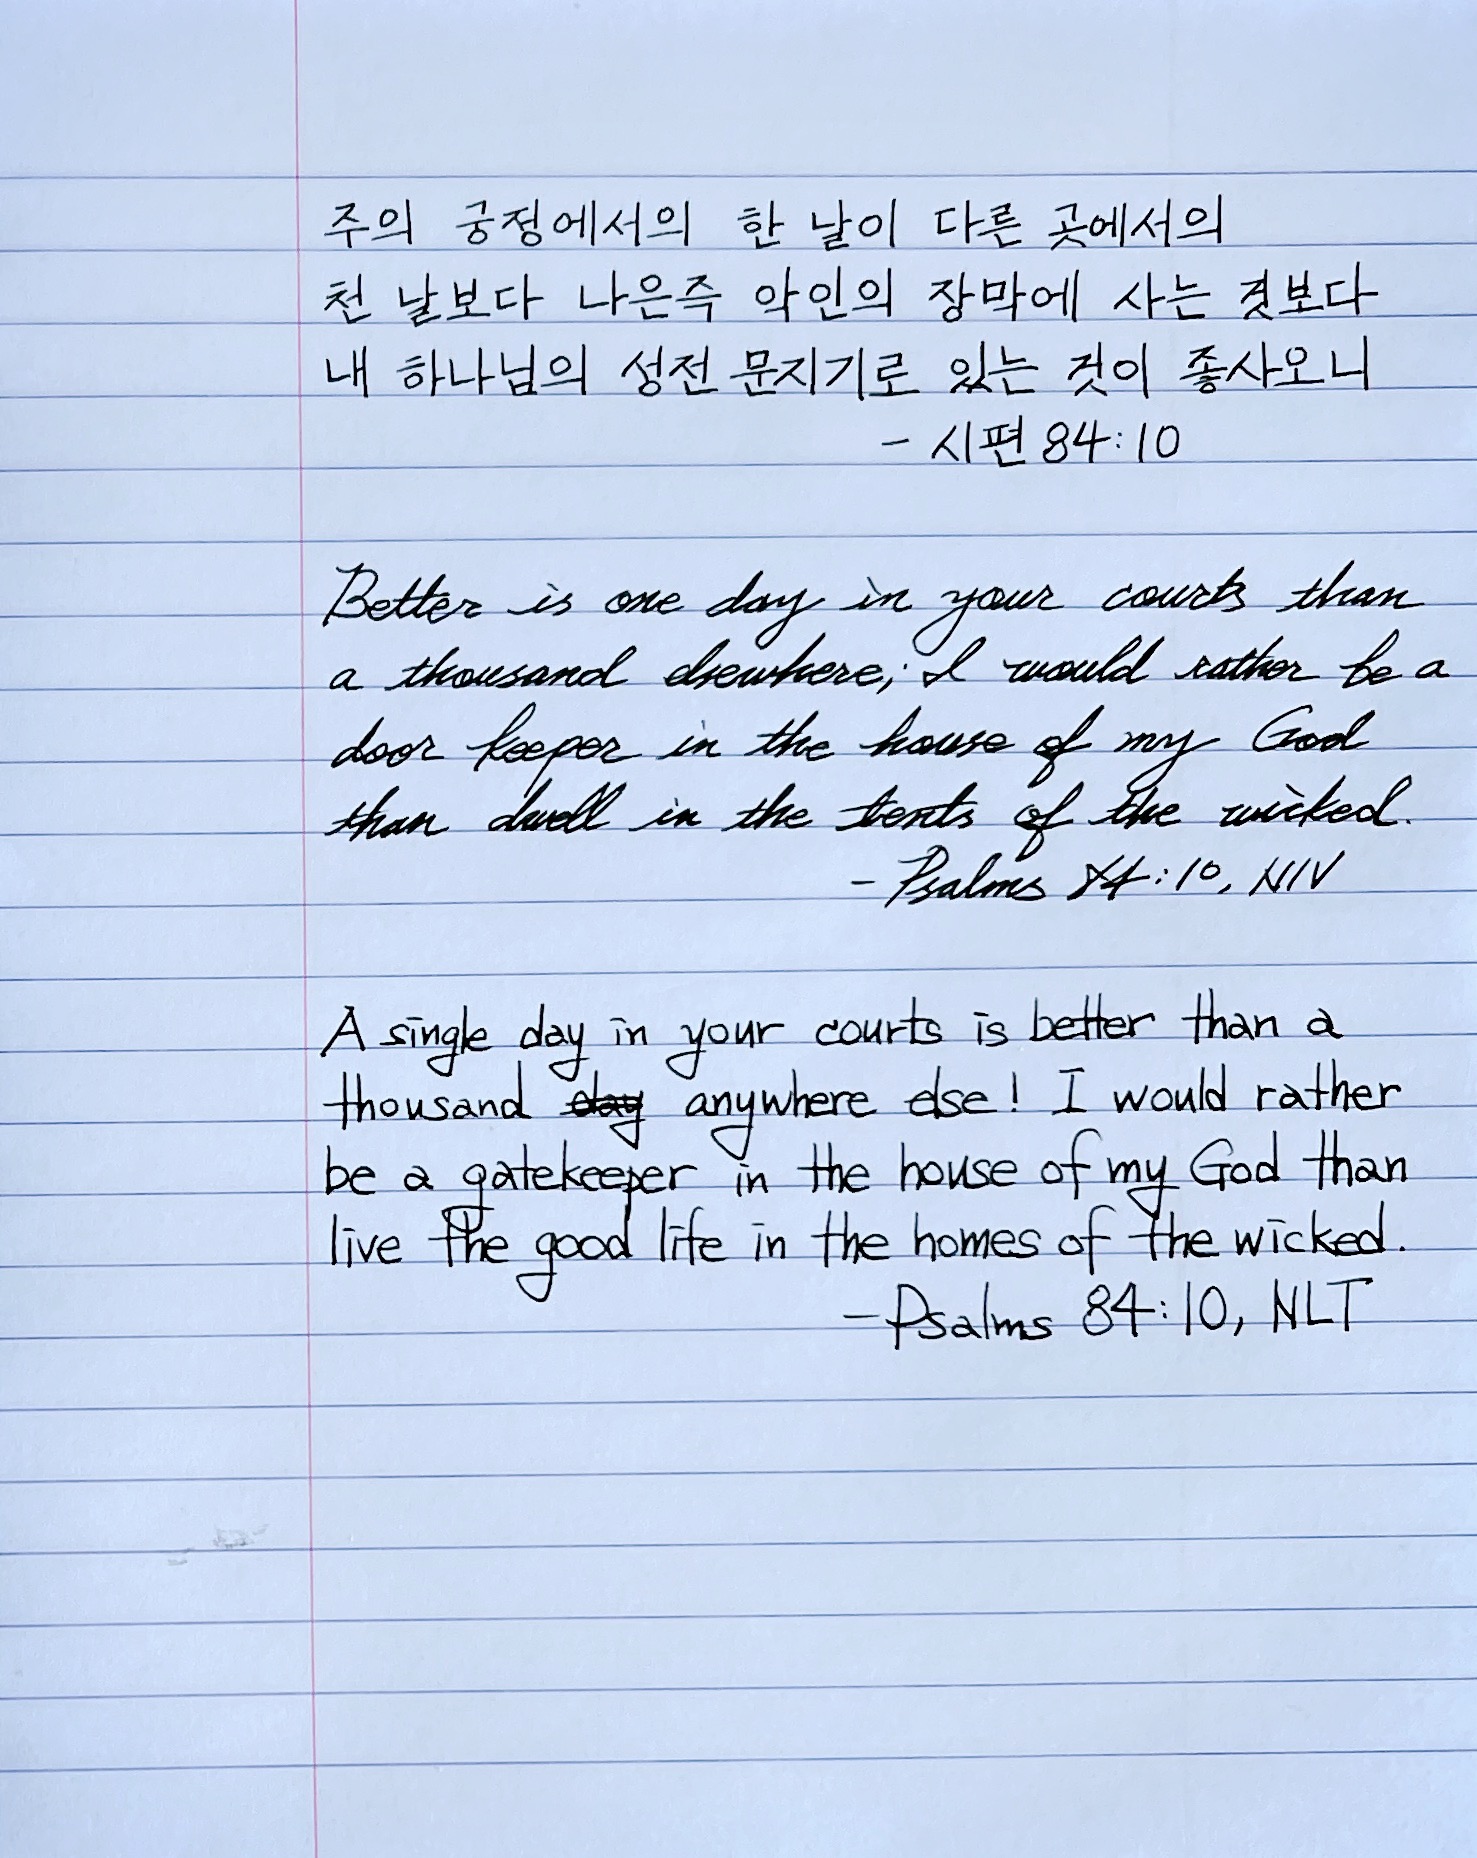 주의 궁정에서의 한 날이 다른 곳에서의
천 날보다 나은즉 악인의 장막에 사는 것보다
내 하나님의 성전 문지기로 있는 것이 좋사오니
- 시편 84:10
Better is one day in your courts than
a thousand elsewhere; I would rather be a
door keeper in the house of my God
than dwell in the tents of the wicked.
- Psalms 84:10, NIV
A single day in your courts is better than a
thousand day anywhere else! I would rather
be a gatekeeper in the house of my God than
live the good life in the homes of the wicked.
- Psalms 84:10, NLT